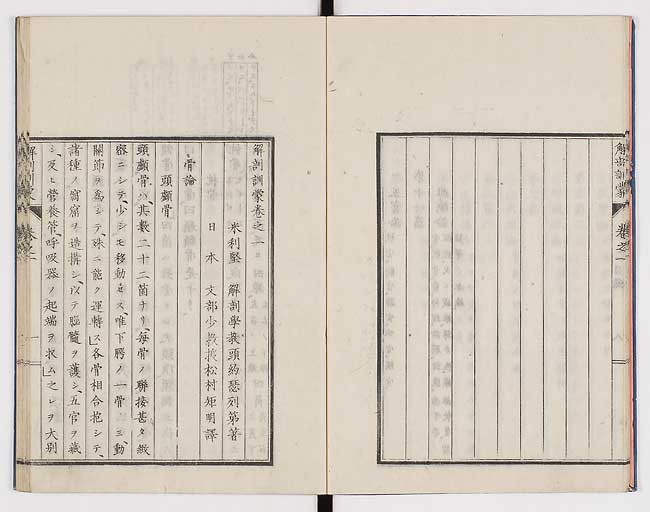 解剖訓蒙
卷之一
解剖訓蒙卷之一
米利堅 解剖學教頭約瑟列第著
日本 文部少教授松村矩明譯
骨論
頭顱骨
頭顱骨ハ、其數二十二箇ナリ、每骨ノ聯接甚タ緻
密ニシテ、少シモ移動セス、唯下腭ノ一骨ノミ、動
關節ヲ爲シテ、殊ニ能ク運轉ス、各骨相合抱シテ、
諸種ノ窩竇ヲ造搆シ、以テ腦髓ヲ護シ、五官ヲ藏
シ、及ヒ營養管、呼吸器ノ起端ヲ收ム、之レヲ大別
解剖訓蒙
卷之一
一